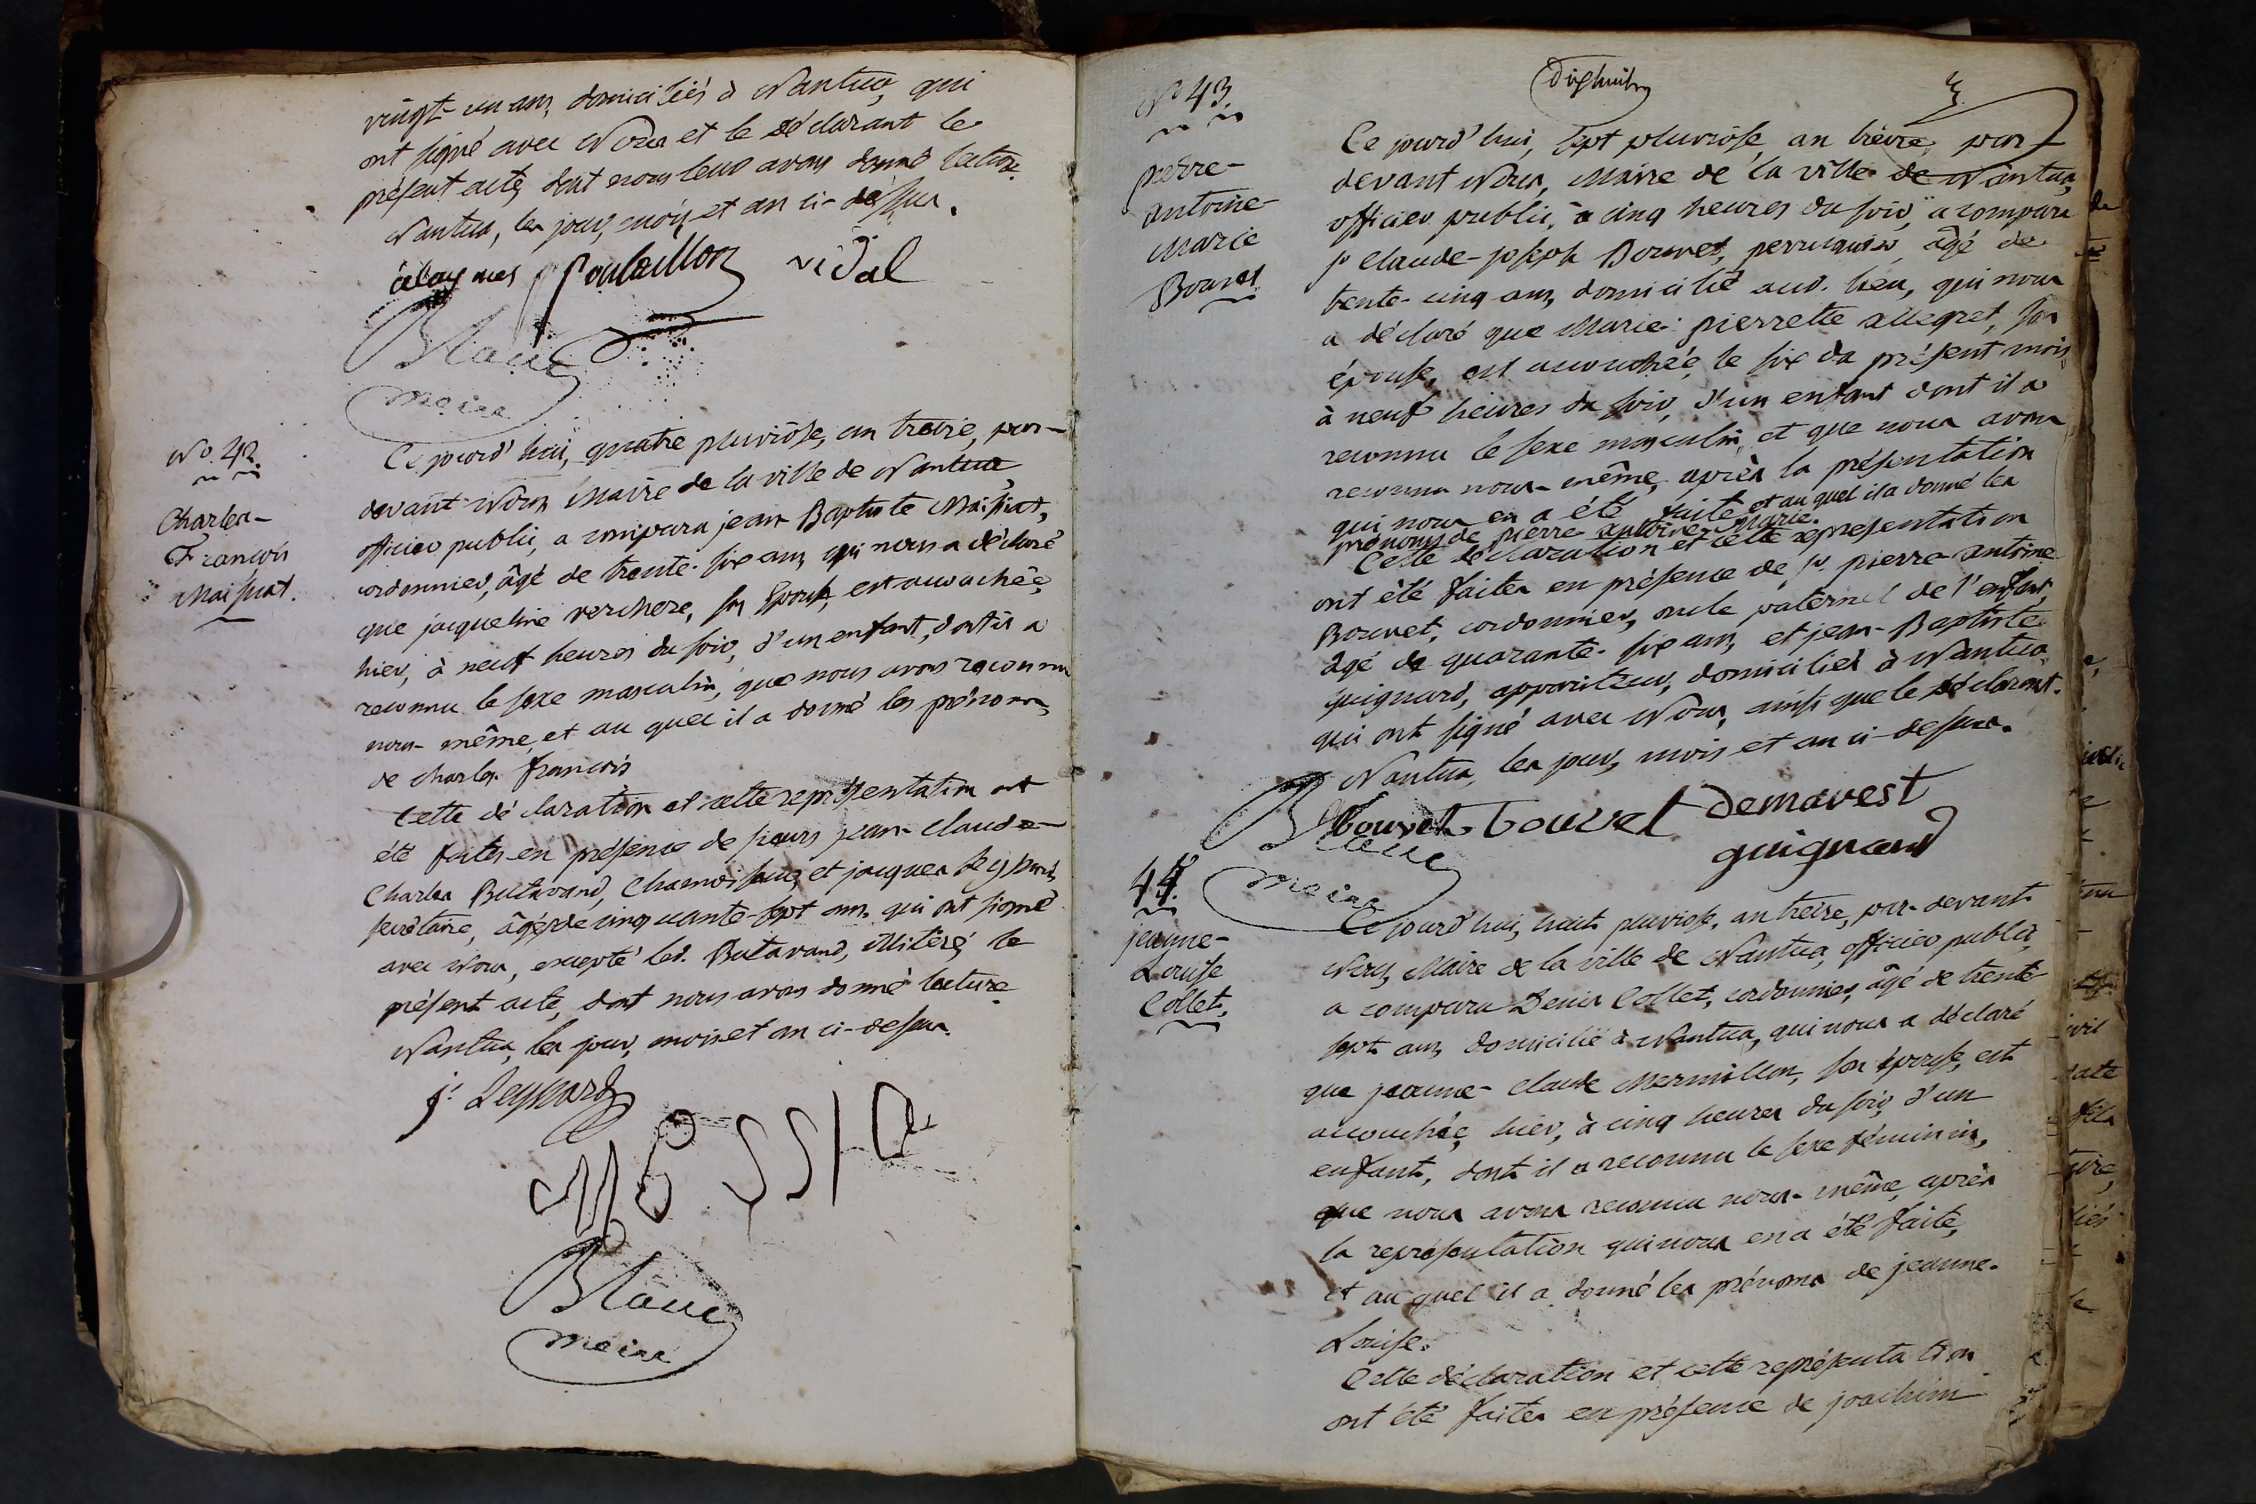 vingt-un ans, domiciliés à Nantua, qui
ont signé avec Nous et le déclarant le
présent acte, dont nous leur avons donné lecture.
Nantua, les jour, mois et an ci-dessus.
pouleillon vidal
Blanc
maire
N.º 42.
Charles-
François
Maissiat.
Ce jourd'hui, quatre pluviôse, an treize, par-
devant Nous Maire de la ville de Nantua,
officier public, a comparu jean Baptiste Maissiat,
cordonnier, âgé de trente-six ans, qui nous a déclaré
que jacqueline verchere, son Epouse, est accouchée,
hier, à neuf heures du soir, d'un enfant, dont il a
reconnu le sexe masculin, que nous avons reconnu
nous-même, et au quel il a donné les prénoms
de charles françois
Cette déclaration et cette représentation ont
été faites en présence de sieurs jean-claude-
Charles Butavand, Chamoiseur, et jacques Leyssard,
secrétaire, âgés de cinquante-sept ans, qui ont signé
avec Nous, excepté led. Butavand, illitéré, le
présent acte, dont nous avons donné lecture
Nantua, les jour, mois et an ci-dessus.
j: Leyssard
Blanc
maire
dixhuit
N.º 43.
pierre-
antoine-
Marie
Bouvet
Ce jourd'hui, sept pluviôse, an treize, par-
devant Nous, Maire de la ville de Nantua,
officier public, à cinq heures du soir, a comparu
s.r claude-joseph Bouvet, perruquier, âgé de
trente-cinq ans, domicilié aud. lieu, qui nous
a déclaré que Marie-pierrette allegret, son
épouse, est accouchée, le six du présent mois,
à neuf heures du soir, d'un enfant dont il a
reconnu le sexe masculin, et que nous avons
reconnu nous-même, après la présentation
qui nous en a été faite et au quel il a donné les
prénoms de pierre antoine Marie.
Cette déclaration et cette représentation
ont été faites en présence de s.r pierre antoine
Bouvet, cordonnier, oncle paternel de l'enfant,
âgé de quarante-six ans, et jean-Baptiste
guignard, appariteur, domiciliés à Nantua,
qui ont signé avec Nous, ainsi que le déclarant.
Nantua, les jour, mois et an ci-dessus.
Bouvet bouvet demarest
guignard
Blanc
maire
44.
jeanne-
Louise
Collet.
Ce jourd'hui, huit pluviôse, an treize, par-devant
Nous, Maire de la ville de Nantua, officier public,
a comparu Denis Collet, cordonnier, âgé de trente-
sept ans, domicilié à Nantua, qui nous a déclaré
que jeanne-claude Mermillon, son épouse, est
accouchée, hier, à cinq heures du soir, d'un
enfant, dont il a reconnu le sexe féminin,
que nous avons reconnu nous-même, après
la représentation qui nous en a été faite,
et au quel il a donné les prénoms de jeanne-
Louise.
Cette déclaration et cette représentation
ont été faites en présence de joachim